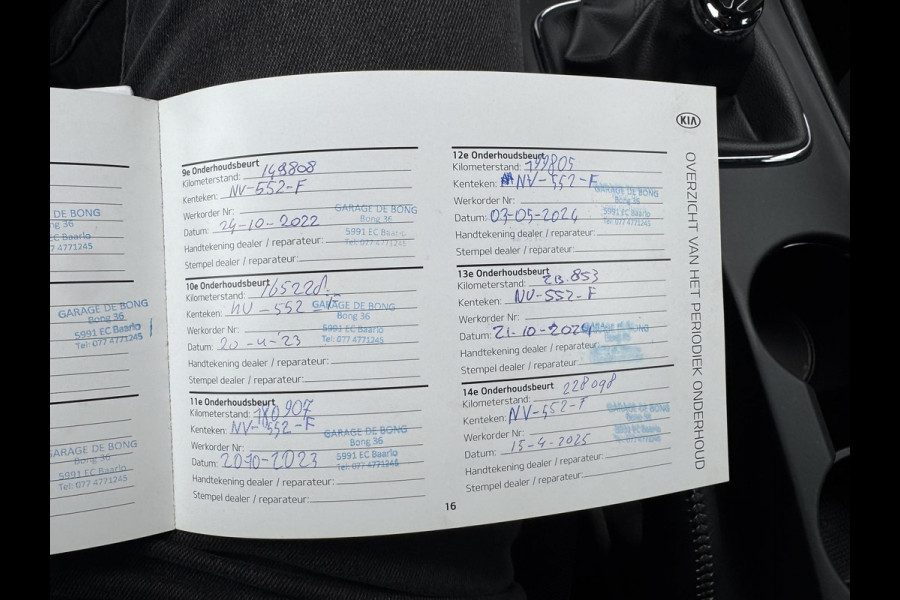 DE BONG
ng 36
EC Baarlo
77 4771245
GARAGE DE BONG
Bong 36
5991 EC Baarlo
Tel: 077 4771245
GARAGE DE BONG
Bong 36
5991 EC Baarlo
Tel: 077 4771245
9e Onderhoudsbeurt
Kilometerstand: 149808
Kenteken: NV-552-F
Werkorder Nr:
Datum: 24-10-2022
Handtekening dealer / reparateur:
Stempel dealer / reparateur:
GARAGE DE BONG
Bong 36
5991 EC Baarlo
Tel: 077 4771245
10e Onderhoudsbeurt
Kilometerstand: 165228
Kenteken: NV-552-F
Werkorder Nr:
Datum: 20-4-23
Handtekening dealer / reparateur:
Stempel dealer / reparateur:
GARAGE DE BONG
Bong 36
5991 EC Baarlo
Tel: 077 4771245
11e Onderhoudsbeurt
Kilometerstand: 180907
Kenteken: NV-552-F
Werkorder Nr:
Datum: 20-10-2023
Handtekening dealer / reparateur:
Stempel dealer / reparateur:
GARAGE DE BONG
Bong 36
5991 EC Baarlo
Tel: 077 4771245
12e Onderhoudsbeurt
Kilometerstand: 199805
Kenteken: NV-552-F
Werkorder Nr:
Datum: 03-05-2024
Handtekening dealer / reparateur:
Stempel dealer / reparateur:
GARAGE DE BONG
Bong 36
5991 EC Baarlo
Tel: 077 4771245
13e Onderhoudsbeurt
Kilometerstand: 213.853
Kenteken: NV-552-F
Werkorder Nr:
Datum: 21-10-2024
Handtekening dealer / reparateur:
Stempel dealer / reparateur:
14e Onderhoudsbeurt
Kilometerstand: 228098
Kenteken: NV-552-F
Werkorder Nr:
Datum: 15-4-2025
Handtekening dealer / reparateur:
Stempel dealer / reparateur:
GARAGE DE BONG
Bong 36
5991 EC Baarlo
16
KIA
OVERZICHT VAN HET PERIODIEK ONDERHOUD